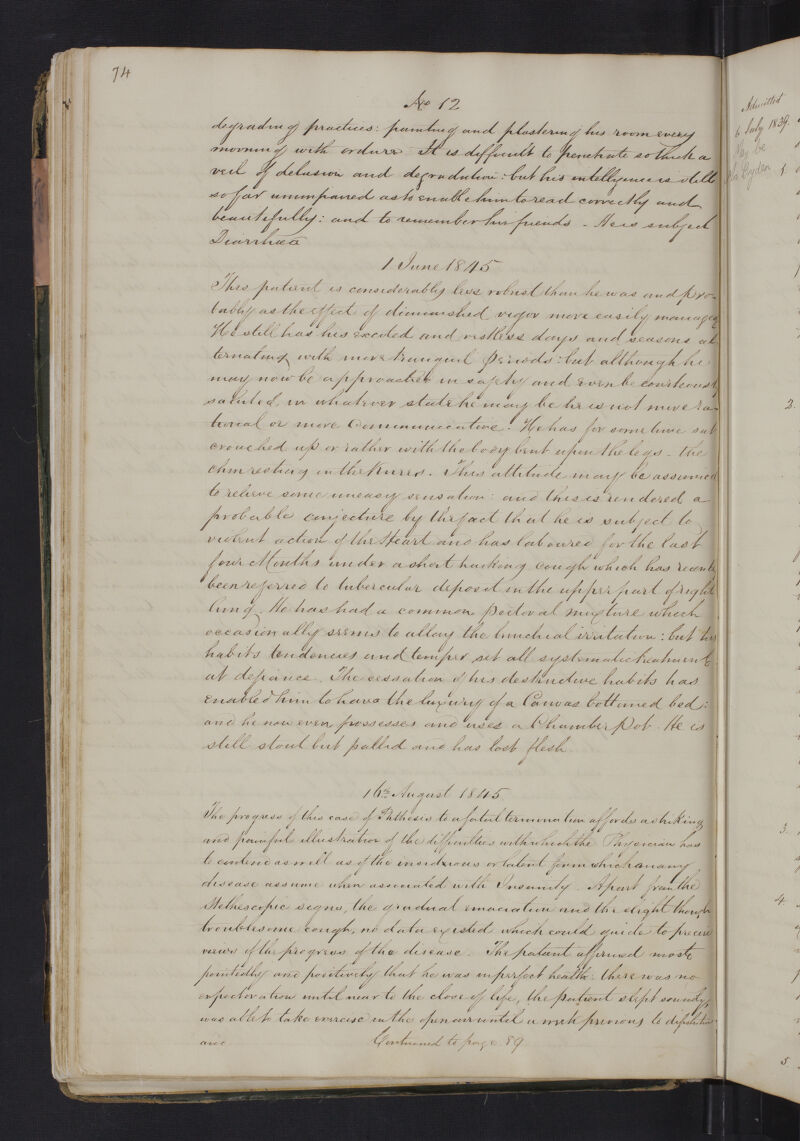 74
No 12
degrading practices: painting and plastering his room every
morning with ordure. It is difficult to penetrate so thick a
veil of delusion and degradation: but his intelligence is still
so far unimpaired as to enable him to read correctly and
beautifully: and to remember his friends. He is subject
Diarrhœa
1 June 1845
This patient is considerably less robust than he was and pro-
bably as the effect of diminished vigor more easily managed
He still has his excited and restless days and seasons al
ternating with more tranquil Periods: but although he
may now be approached in safety and even be courteously
saluted, in whatever state he may be he is not more ra-
tional or more Communicative. He has for some time sat
crouched up or rather with the body bent upon the legs - the
chin resting on the Knees. This attitude may be assumed
to relieve some uneasy sensation: and this is rendered a
probable conjecture by the fact that he is subject to
violent action of the Heart and has laboured for the last
four Months under a short hacking cough which has recently
been referred to tubercular deposit in the upper part of right
lung. He has had a common Pectoral mixture which
occasionally seems to allay the bronchial irritation: but his
habits tendencies and temper set all systematic treatment
at defiance. The cessation of his destructive habits has
enabled him to have the luxury of a Canvas bottomed bed:
and he now even possesses and uses a Chamber Pot. He is
still stout but pallid and has lost flesh
16th August 1845
The progress of this case of Phthisis to a fatal termination affords a striking
and painful illustration of the difficulties with which the Physician has
to contend as well as of the insidious or latent form which many
disease assume when associated with Insanity. Apart from the
Stethescopic signs, the gradual emaciation and the slight though
troublesome cough, no data existed which could guide to precise
views of the progress of the disease. The patient affirmed most
pointedly and positively that he was in perfect health. there was no
expectoration until near to the close of life, the patient slept soundly,
was able to take exercise in the open air until a week previous to dissolution
and
Continued to page 89
Admitted
6 July 1839.
1.
2.
3.
4.
5.